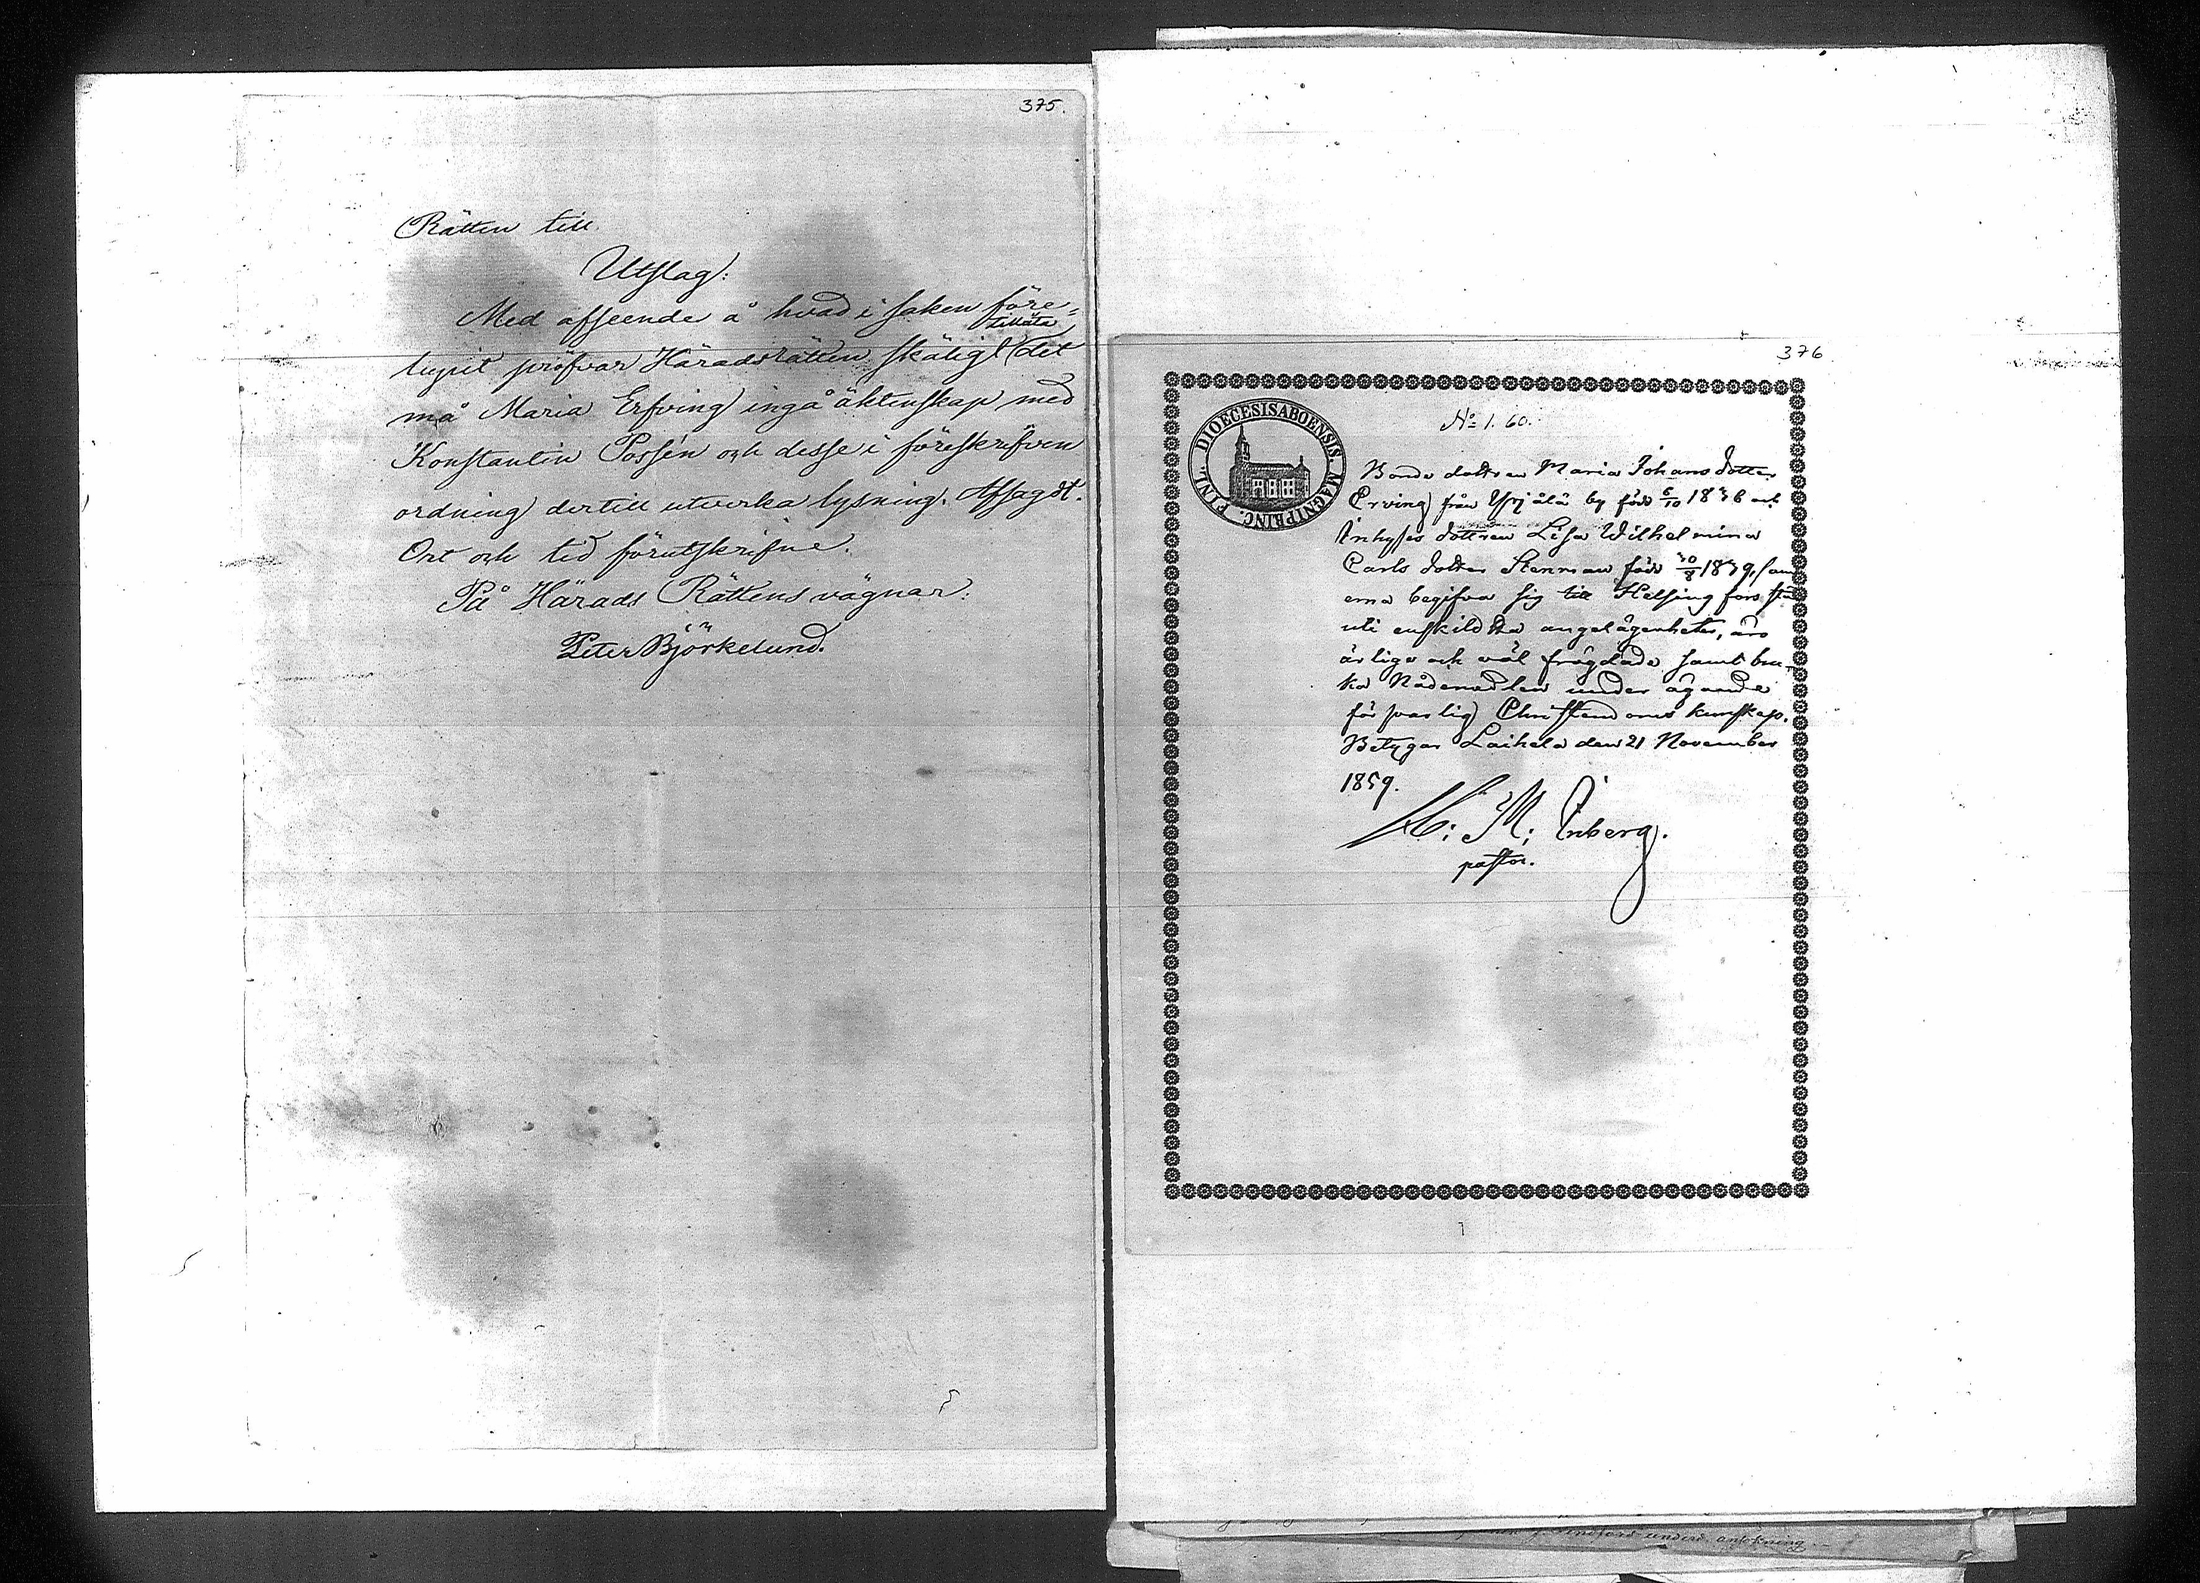 375.
Rätten till.
Utslag:
Med afseende å hvad i saken före-
tillåta
lupit pröfvar Häradsrätten skäligt det
må Maria Erfving ingå äktenskap med
Konstantin Possén och desse i föreskrifven
ordning dertill utverka lysning. Afsagdt.
Ort och tid förutskrifne.
På Härads Rättens vägnar:
Peter Björkelund.
376
DIOECESIS ABOENSIS. MAGNI PRINC. FINL.
No 1. 60.
Bonde dottren Maria Johans dotter
Erving från by född 6/10 1838 och
Inhyses dottren Lisa Wilhelmina
Carls dotter Stenman född 30/8 1839,
erna begifva sig till Helsingfors
uti enskildta angelägenheter, äro
ärliga och väl frägdade samt bru-
ka Nådemedlen under ägande
försvarlig Christendoms kunskap.
Betygar Laihela den 21 November
1859.
M: Inberg.
pastor.
underd. ansökning